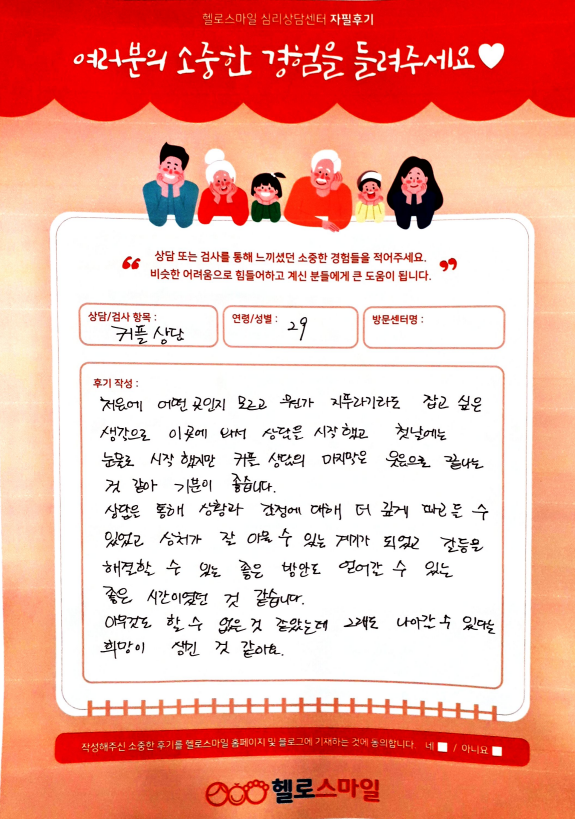 헬로스마일 심리상담센터 자필후기
여러분의 소중한 경험을 들려주세요
“ 상담 또는 검사를 통해 느끼셨던 소중한 경험들을 적어주세요.
비슷한 어려움으로 힘들어하고 계신 분들에게 큰 도움이 됩니다. ”
상담/검사 항목 : 커플 상담
연령/성별 : 29
방문센터명 :
후기 작성 :
처음에 어떤 곳인지 모르고 뭔가 지푸라기라도 잡고 싶은
생각으로 이곳에 와서 상담을 시작했고 첫날에는
눈물로 시작 했지만 커플 상담의 마지막은 웃음으로 끝나는
것 같아 기분이 좋습니다.
상담은 통해 상황과 감정에 대해 더 깊게 파고들 수
있었고 상처가 잘 아물 수 있는 계기가 되었고 갈등을
해결할 수 있는 좋은 방안도 얻어갈 수 있는
좋은 시간이였던 것 같습니다.
아무것도 할 수 없을 것 같았는데 그래도 나아갈 수 있다는
희망이 생긴 것 같아요.
작성해주신 소중한 후기를 헬로스마일 홈페이지 및 블로그에 기재하는 것에 동의합니다. 네 / 아니요
헬로스마일